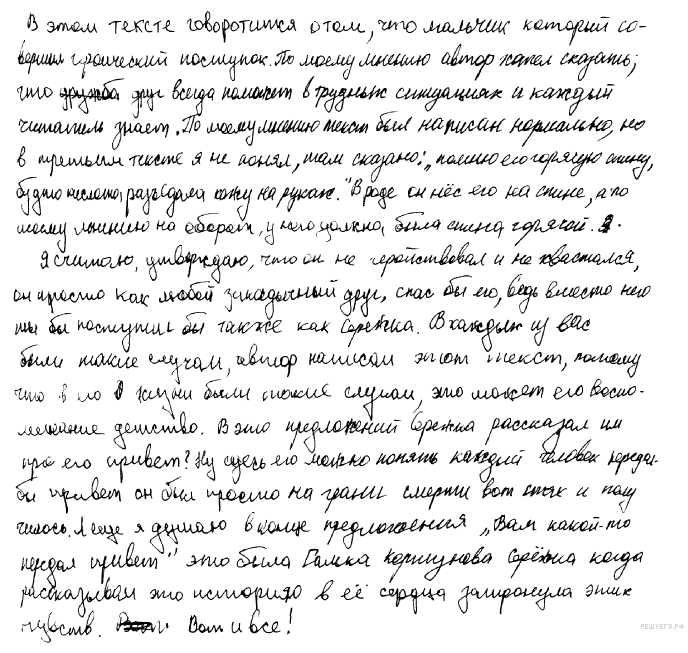 В этом тексте говоротится о том, что мальчик который со-
вершил гироический поступок. По моему мнению автор хател сказать;
что друг всегда поможет в трудных ситуациях и каждый
читатель знает. По моему мнению текст был написан нормально, но
в третьим тексте я не понял, там сказано: „помню его горячую спину,
будто кислота, разъедала кожу на руках." Вроде он нёс его на спине, а по
моему мнению на оборот, у него должна была спина горячой.
Я считаю, утверждаю, что он не геройствовал и не хвастался,
он просто как любой закадычный друг, спас бы его, ведь вместо него
мы бы поступили бы также как Серёжка. В каждых из вас
были такие случаи, автор написал этот текст, потому
что в его жизни были такие случаи, это может его воспо-
менание детство. В это предложений Серёжка рассказал им
про его привет? Ну здесь его можно понять каждый человек передал
бы привет он был просто на грани смерти вот так и полу
чилось. А еще я думаю в конце предложения „Вам какой-то
передал привет" это была Галка Коршунова Серёжка когда
рассказывал это историю в её сердца затронула этих
чувств. Вот и все!
РЕШУЕГЭ.РФ